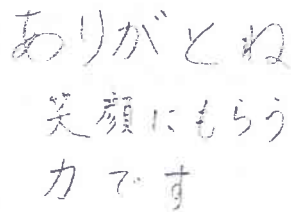 ありがとね
笑顔にもらう
力です